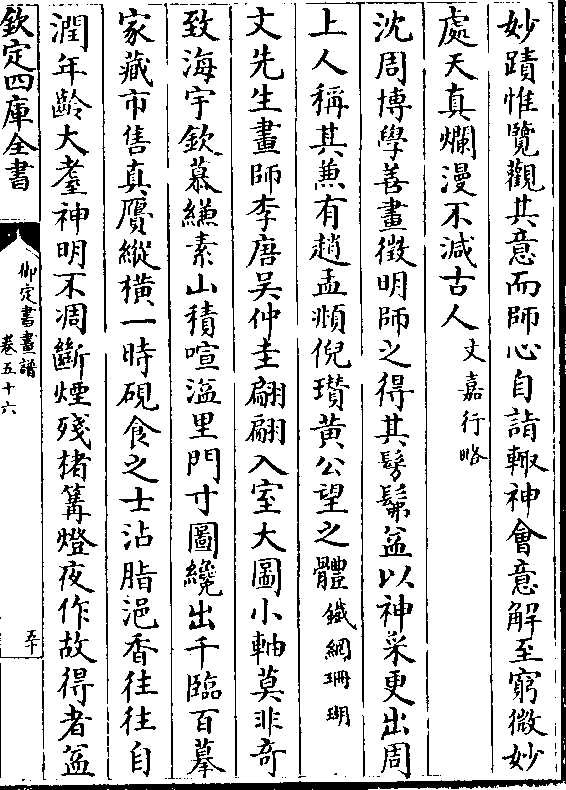 妙蹟惟覽觀其意而師心自詣輙神會意解至窮微妙
處天真爛漫不減古人文嘉行略
沈周博學善畫徵明師之得其髣髴益以神采更出周
上人稱其蕪有趙孟頫倪瓚黄公望之體鐵網珊瑚
文先生畫師李唐吳仲圭翩翩入室大圖小軸莫非奇
致海宇欽慕縑素山積喧溢里門寸圖纔出千臨百摹
家藏市售真贗縱橫一時硯食之士沾脂浥香往往自
潤年齡大耋神明不凋斷煙殘楮篝燈夜作故得者益
欽定四庫全書
御定書畫譜
卷五十六
五十